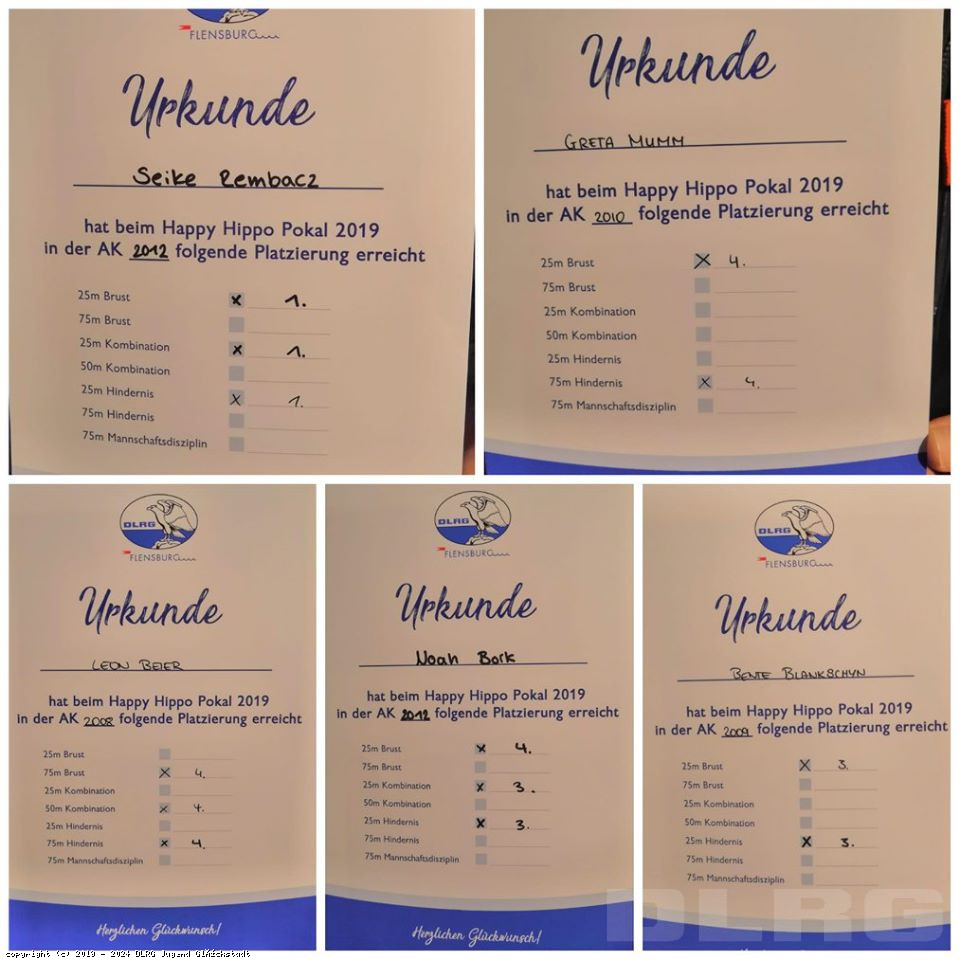 FLENSBURG
Urkunde
Seike Rembacz
hat beim Happy Hippo Pokal 2019
in der AK 2012 folgende Platzierung erreicht
25m Brust x 1.
75m Brust
25m Kombination x 1.
50m Kombination
25m Hindernis x 1.
75m Hindernis
75m Mannschaftsdisziplin
Urkunde
GRETA MUMM
hat beim Happy Hippo Pokal 2019
in der AK 2010 folgende Platzierung erreicht
25m Brust x 4.
75m Brust
25m Kombination
50m Kombination
25m Hindernis
75m Hindernis x 4.
75m Mannschaftsdisziplin
DLRG
FLENSBURG
Urkunde
LEON BEIER
hat beim Happy Hippo Pokal 2019
in der AK 2008 folgende Platzierung erreicht
25m Brust
75m Brust x 4.
25m Kombination
50m Kombination x 4.
25m Hindernis
75m Hindernis x 4.
75m Mannschaftsdisziplin
Herzlichen Glückwunsch!
DLRG
FLENSBURG
Urkunde
Noah Bork
hat beim Happy Hippo Pokal 2019
in der AK 2012 folgende Platzierung erreicht
25m Brust x 4.
75m Brust
25m Kombination x 3.
50m Kombination
25m Hindernis x 3.
75m Hindernis
75m Mannschaftsdisziplin
Herzlichen Glückwunsch!
DLRG
FLENSBURG
Urkunde
BENTE BLANKSCHYN
hat beim Happy Hippo Pokal 2019
in der AK 2009 folgende Platzierung erreicht
25m Brust x 3.
75m Brust
25m Kombination
50m Kombination
25m Hindernis x 3.
75m Hindernis
75m Mannschaftsdisziplin
DLRG
copyright (c) 2013 - 2024 DLRG Jugend GlÃ¼ckstadt